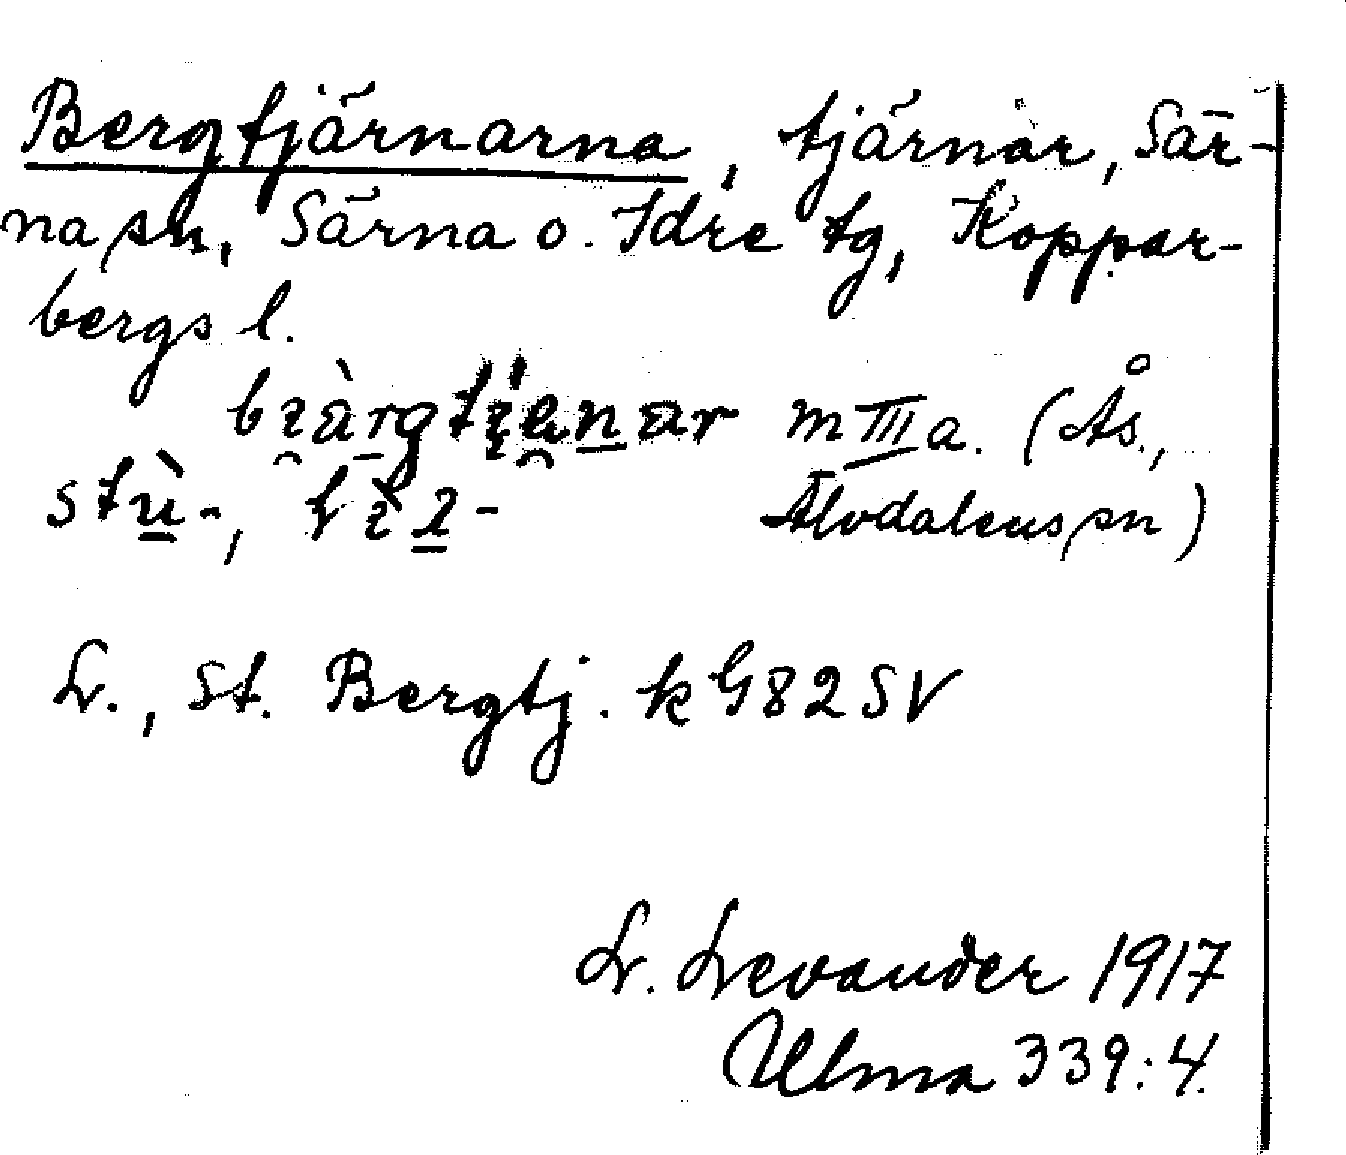 Bergtjärnarna, tjärnar, Sär-
na sn, Särna o. Idre tg, Koppar-
bergs l.
m III a. (Ås.,
stù-, Älvdalens sn)
L., St. Bergtj. k G82SV
L. Levander 1917
Ulma 339:4.